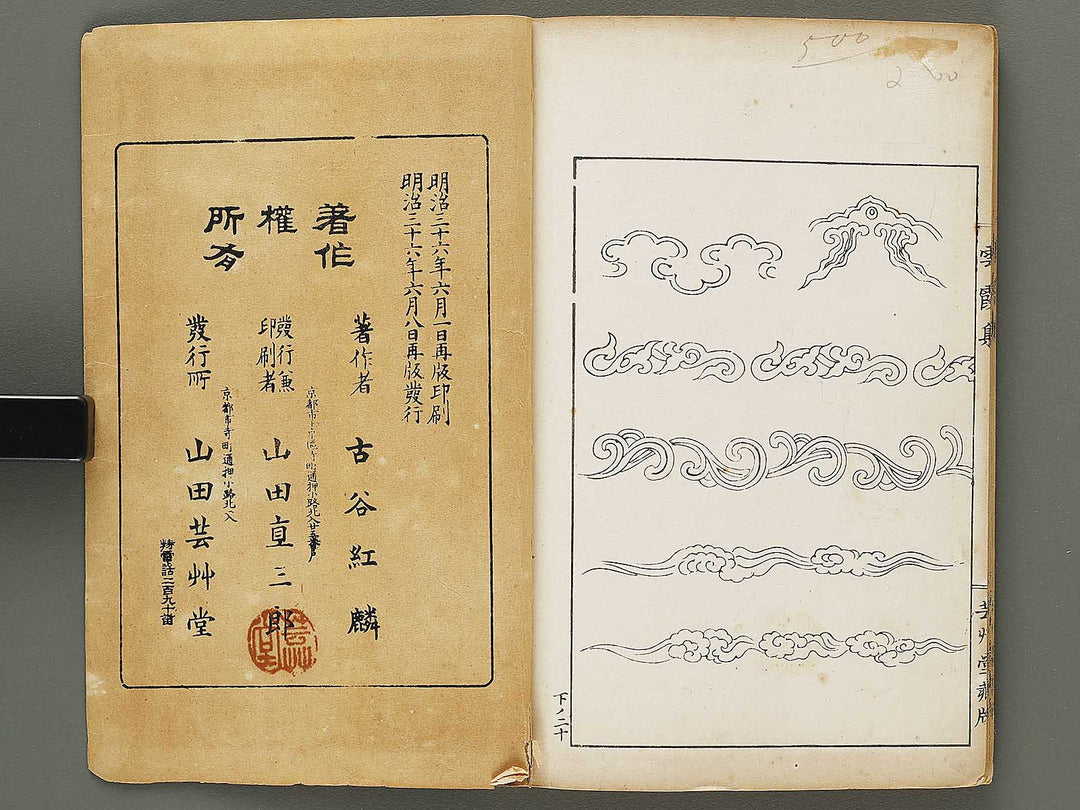 500
2 00
雲霞集
芸艸堂蔵版
下ノ二十
明治三十六年六月一日再版印刷
明治三十六年六月八日再版發行
著作
權
所有
著作者 古谷紅麟
發行兼
印刷者 山田直三郎
發行所 京都市寺町通押小路北入
山田芸艸堂
特電話二百九十番
芸艸堂